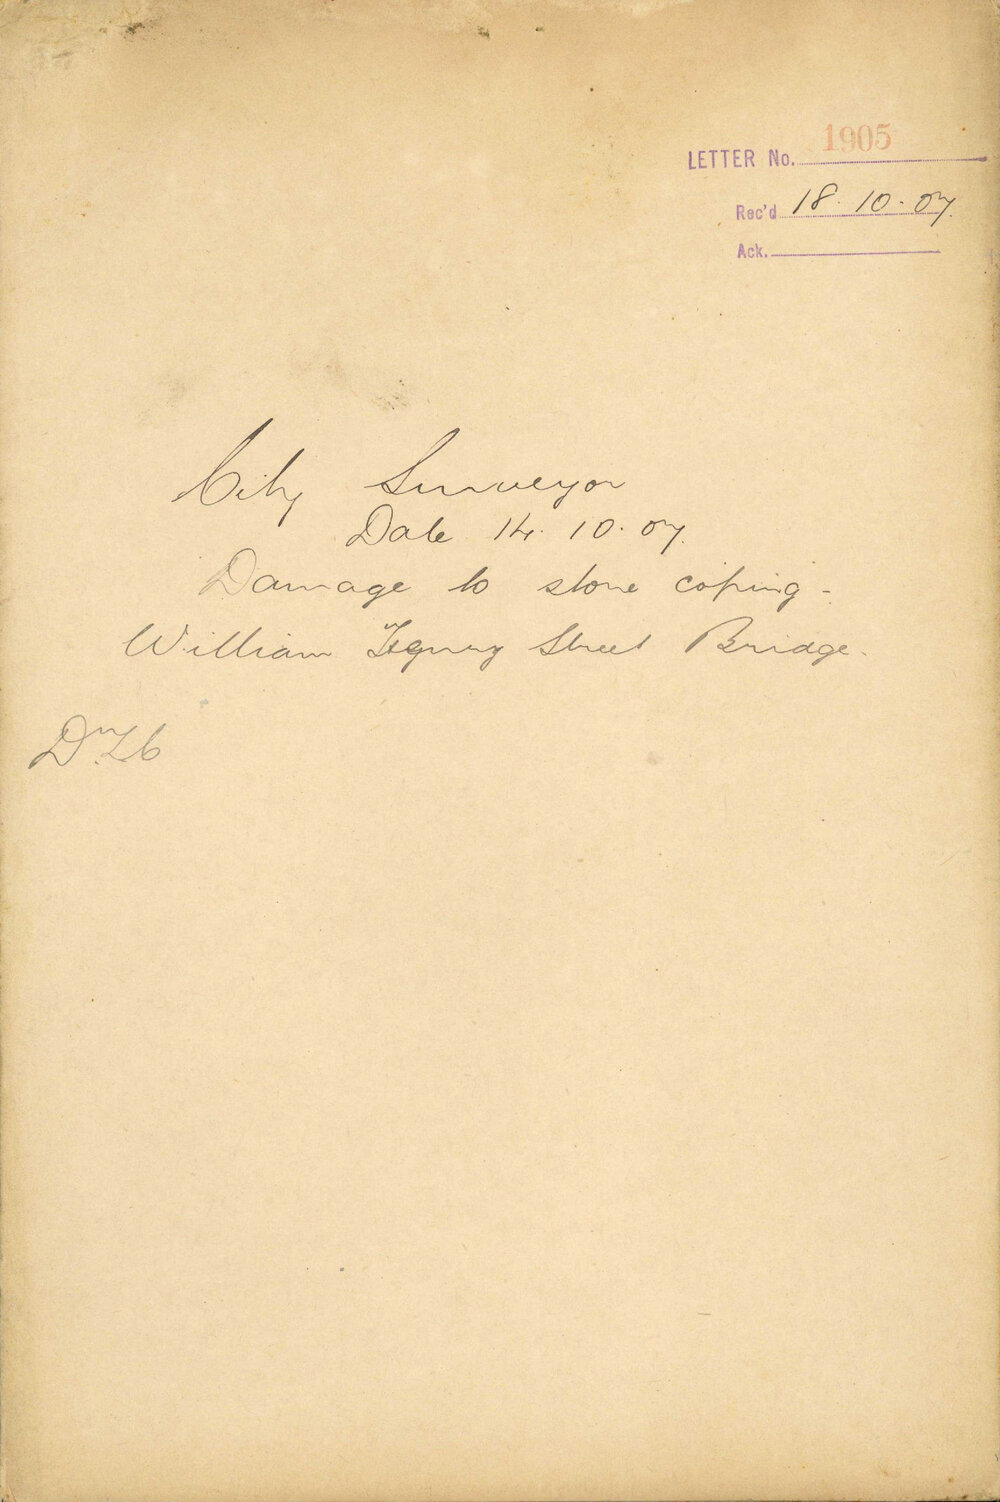 LETTER No. 1905
Rec'd 18.10.07.
Ack.
City Surveyor
Date 14.10.07.
Damage to stone coping -
William Henry Street Bridge.